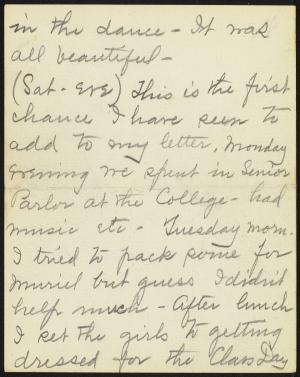 in the dance - It was
all beautiful -
(Sat - Eve) This is the first
chance I have seen to
add to my letter. Monday
Evening we spent in Senior
Parlor at the College - had
music etc - Tuesday morn.
I tried to pack some for
Muriel but guess I didn't
help much - After lunch
I set the girls to getting
dressed for the Class Day